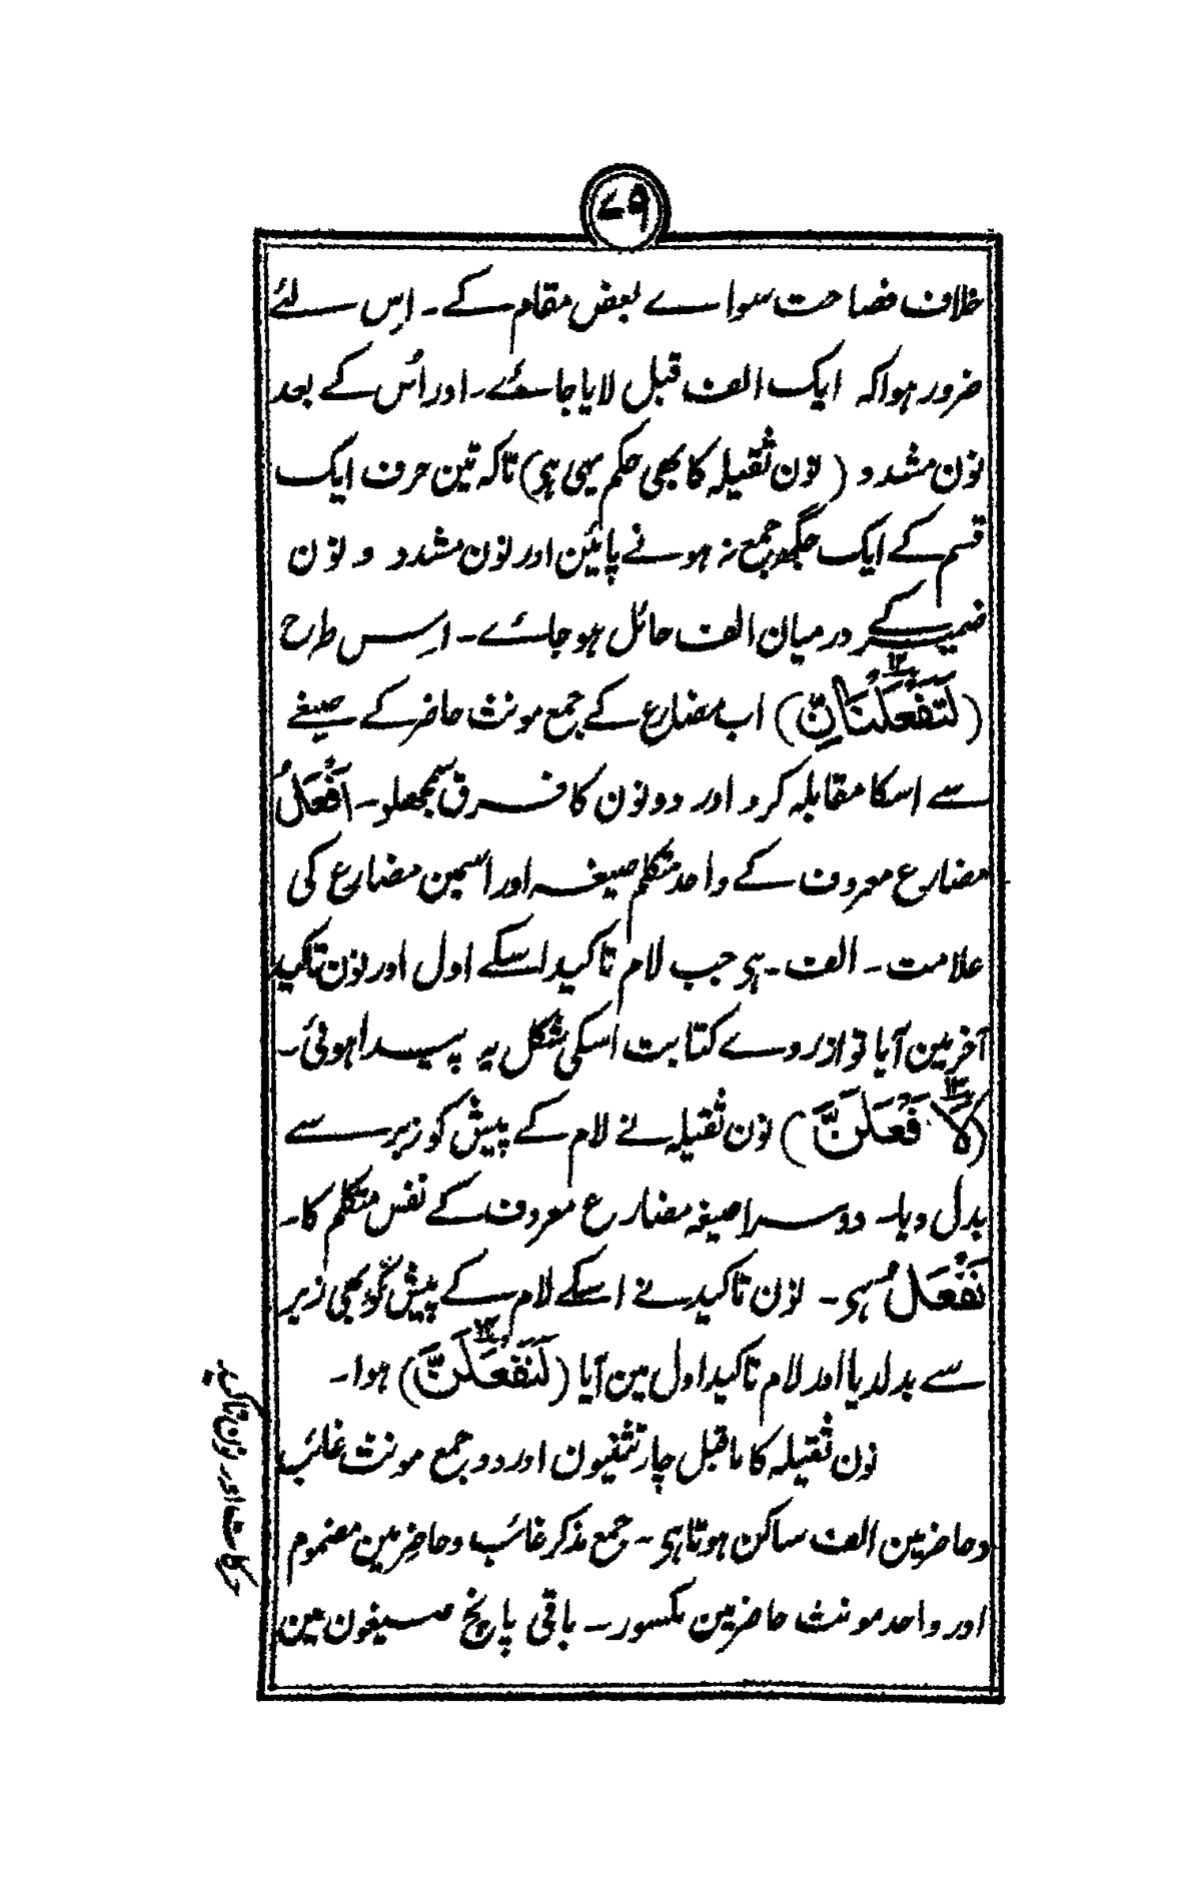 ۷۹
خلاف فصاحت سواے بعض مقام کے۔ اِس لئے
ضرور ہوا کہ ایک الف قبل لایا جائے۔ اور اُس کے بعد
نون مشدد (نون ثقیلہ کا بھی حکم یہی ہی) تاکہ تین حرف ایک
قسم کے ایک جگھ جمع نہ ہونے پائین اور نون مشدد و نون
ضمیر کے درمیان الف حائل ہو جائے۔ اِس طرح
(لَتَفْعَلْنَانِّ) ۱۲ اب مضارع کے جمع مونث حاضر کے صیغے
سے اسکا مقابلہ کرو اور دونون کا فرق سمجھلو۔ اَفْعَلُ
مضارع معروف کے واحد متکلم صیغہ اور اسمین مضارع کی
علامت۔ الف۔ ہی جب لام تاکید اسکے اول اور نون تاکید
آخر مین آیا تو ازروے کتابت اسکی شکل یہ پیدا ہوئی۔
(لَاَفْعَلَنَّ) ۱۳ نون ثقیلہ نے لام کے پیش کو زبر سے
بدل دیا۔ دوسرا صیغہ مضارع معروف کے نفس متکلم کا۔
نَفْعَلُ ہی۔ نون تاکید نے اسکے لام کے پیش کو بھی زبر
سے بدلدیا اور لام تاکید اول مین آیا (لَنَفْعَلَنَّ) ۱۴ ہوا۔
نون ثقیلہ کا ماقبل چار تثنیون اور دو جمع مونث غائب
وحاضر مین الف ساکن ہوتا ہی۔ جمع مذکر غائب وحاضر مین مضموم
اور واحد مونث حاضر مین مکسور۔ باقی پانچ صیغون مین
نون تاکید